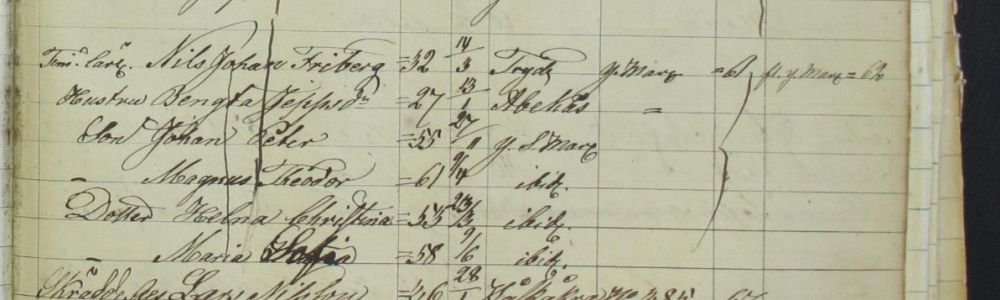 Tim: Carl. Nils Johan Friberg =32 14/3 Tryde y. Marg =61 fl. y. Marg = 62
Hustru Bengta Jeppsdr =27 13/1 Abekås =
Son Johan Peter =55 27/11 y. S Marg
– Magnus Theodor =61 9/4 ibid.
Dotter Helna Christina =53 23/3 ibid.
– Maria Sofia =58 9/6 ibid.
Lars Nilsson =46 28/1